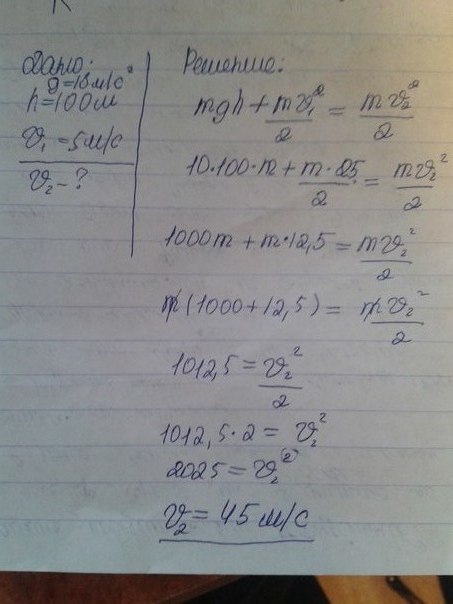 Дано:
g=10м/с²
h=100м
υ₁=5м/с
υ₂-?
Решение:
mgh + mυ₁²/2 = mυ₂²/2
10·100·m + m·25/2 = mυ₂²/2
1000m + m·12,5 = mυ₂²/2
m(1000+12,5) = mυ₂²/2
1012,5 = υ₂²/2
1012,5·2 = υ₂²
2025 = υ₂²
υ₂ = 45м/с